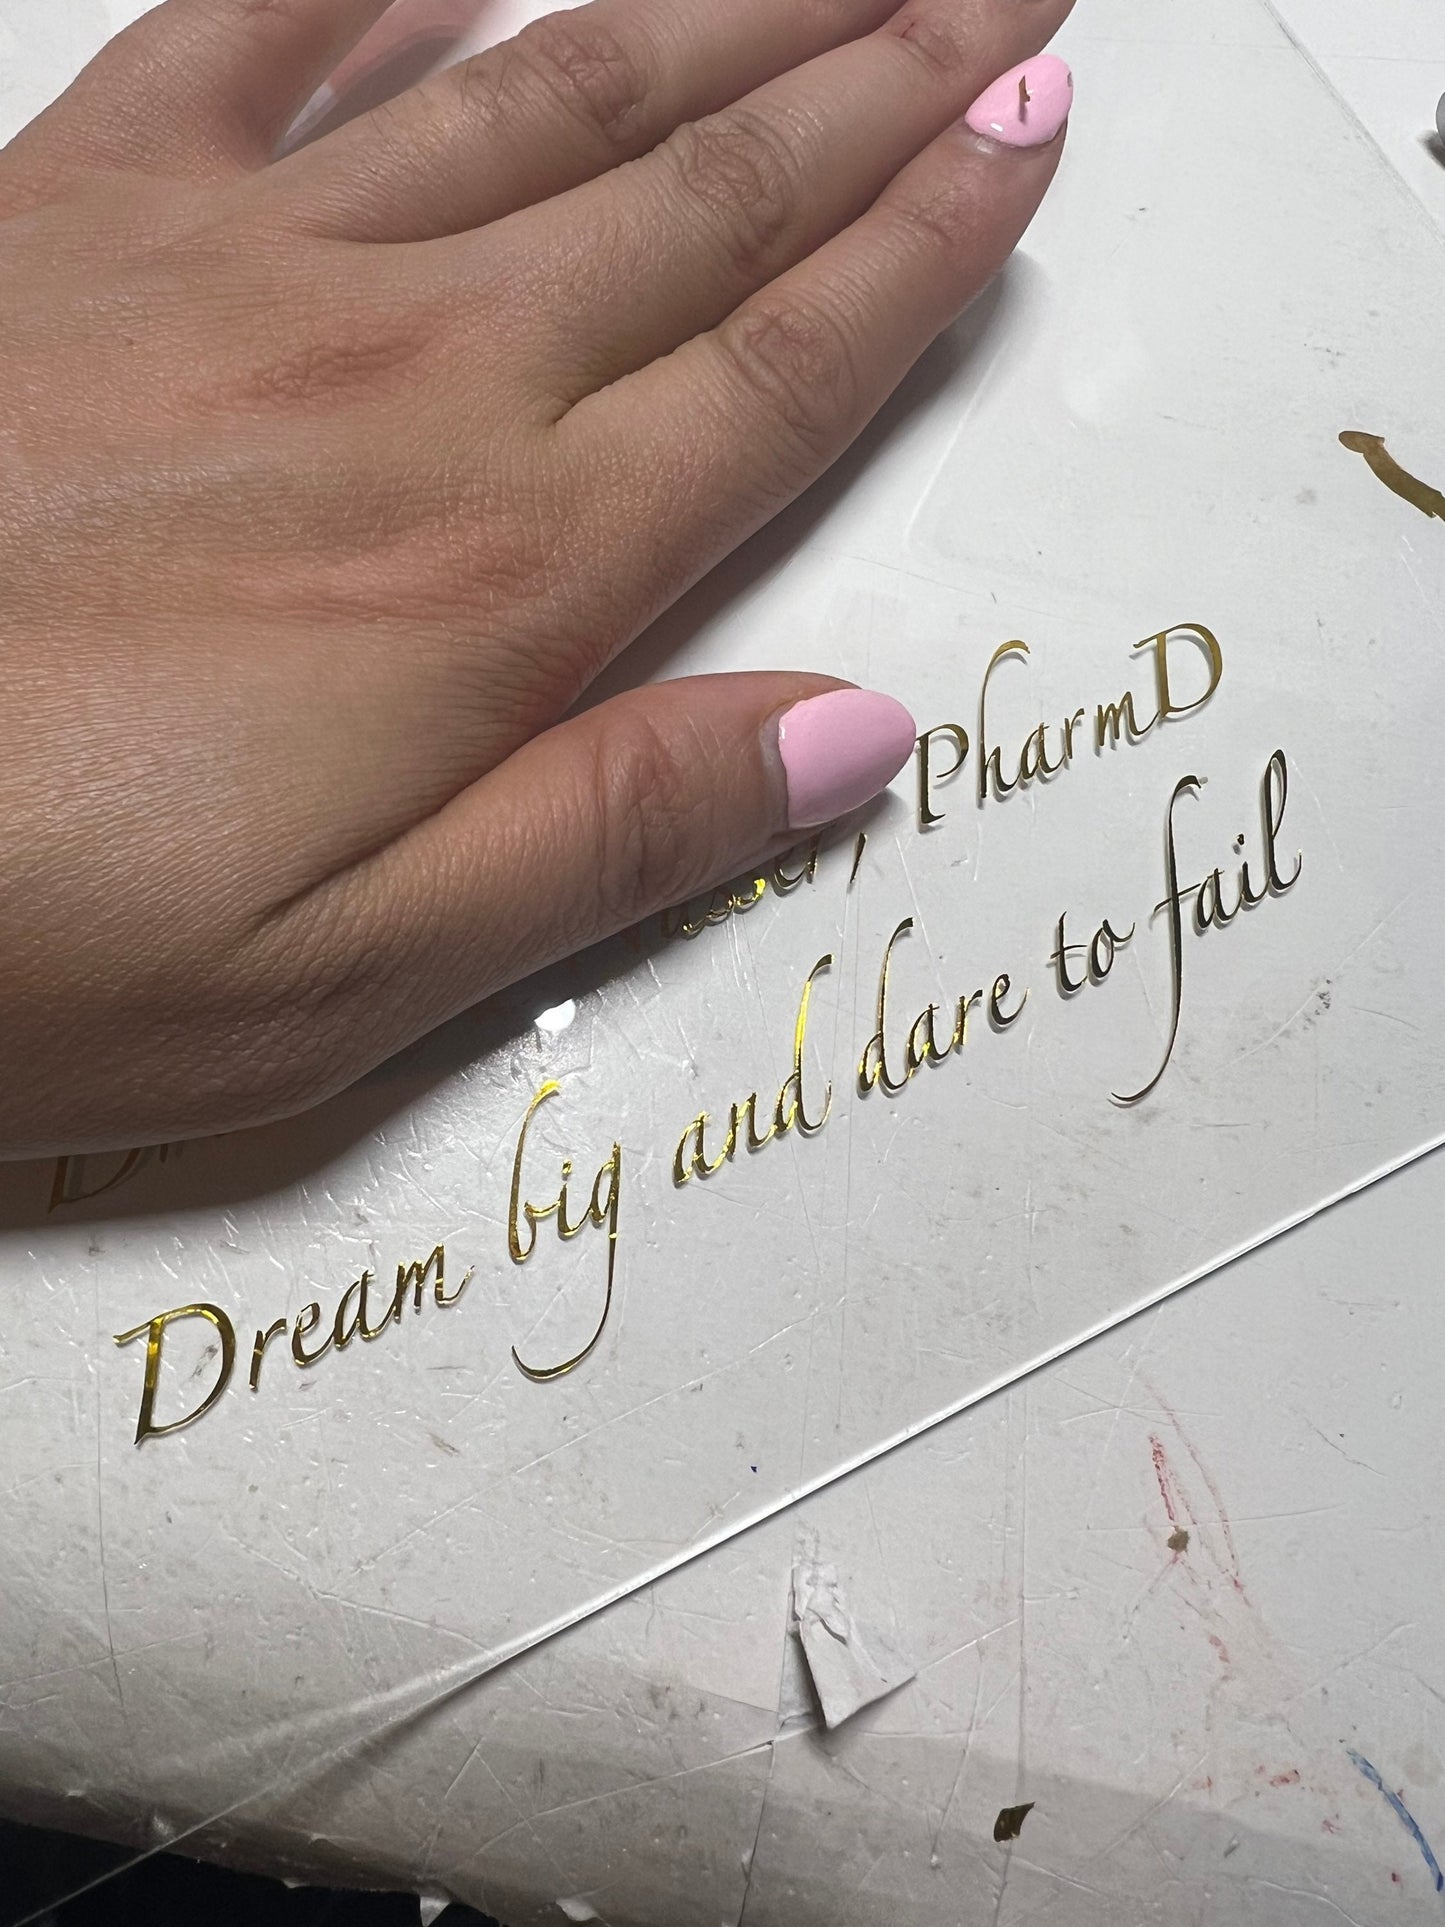 PharmD
Dream big and dare to fail